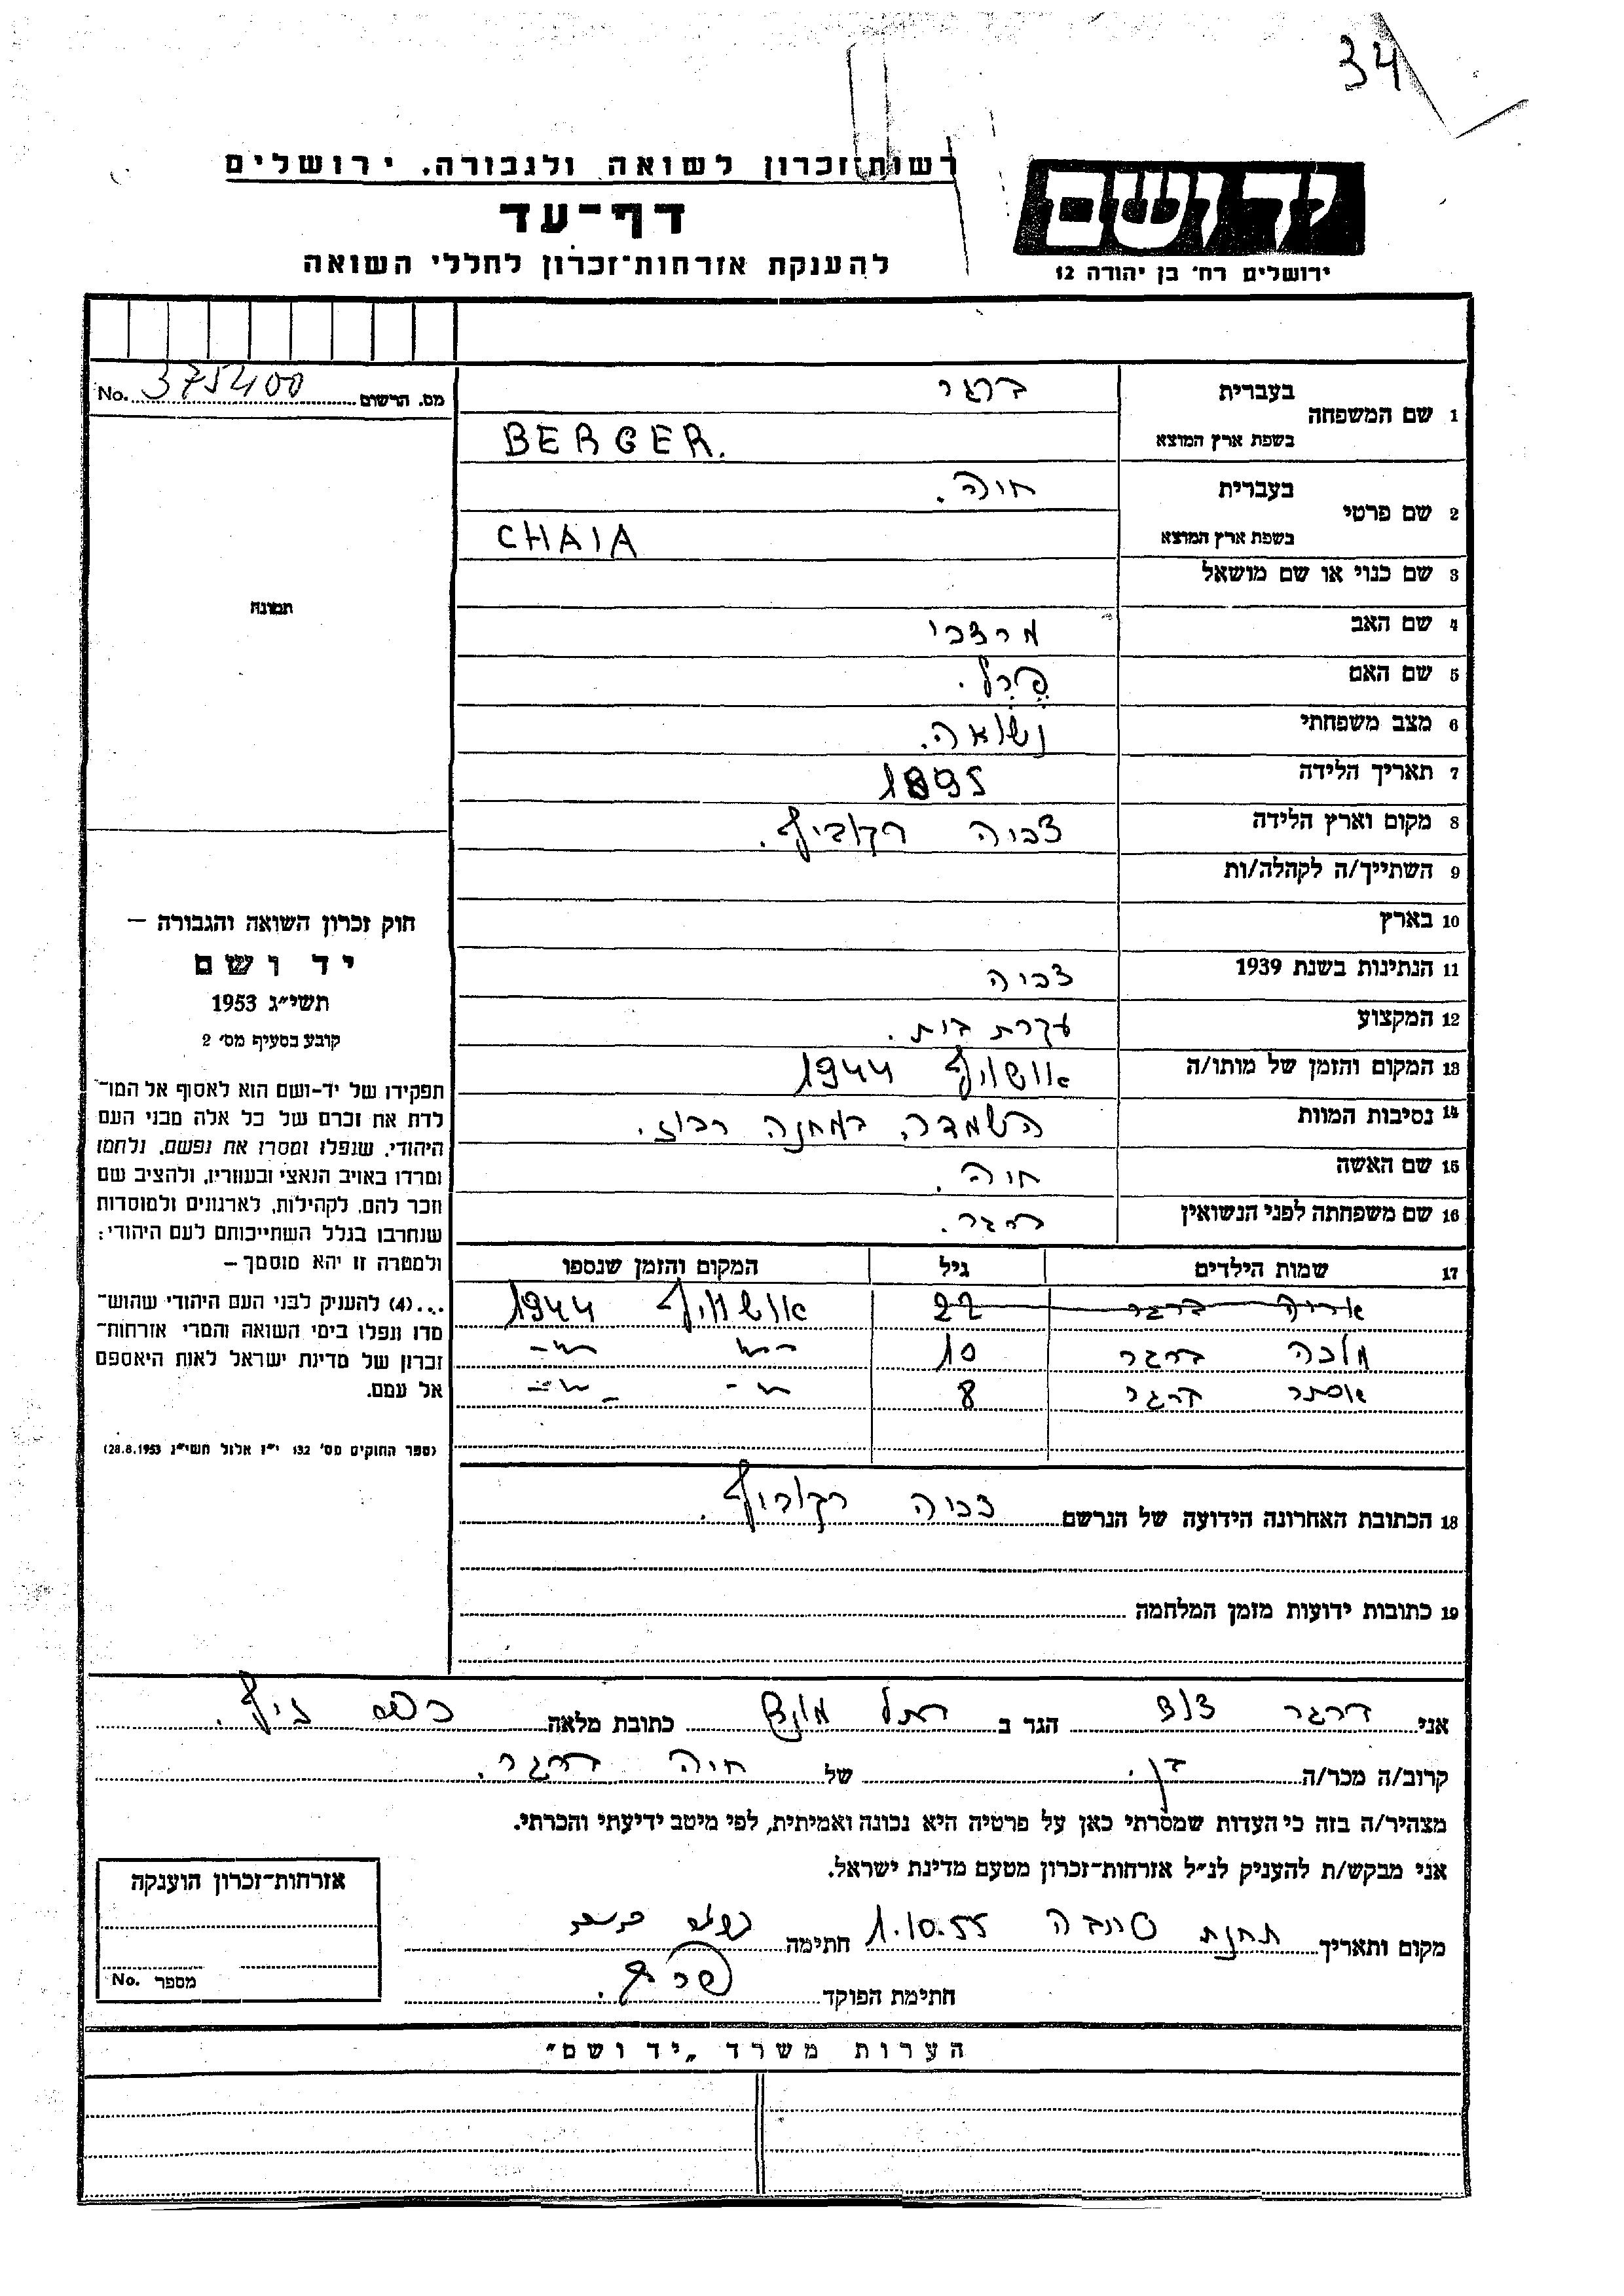 34
רשות־זכרון לשואה ולגבורה. ירושלים
דף־עד
להענקת אזרחות־זכרון לחללי השואה
ידושם
ירושלים רח' בן יהודה 12
No. 375400 מס. הרשום
1 שם המשפחה
בעברית ברגר
בשפת ארץ המוצא BERGER.
2 שם פרטי
בעברית חיה.
בשפת ארץ המוצא CHAIA
3 שם כנוי או שם מושאל
4 שם האב מרדכי
5 שם האם פרל.
6 מצב משפחתי נשואה.
7 תאריך הלידה 1895
8 מקום וארץ הלידה
9 השתייך/ה לקהלה/ות
10 בארץ
11 הנתינות בשנת 1939
12 המקצוע עקרת בית.
13 המקום והזמן של מותו/ה אושויץ 1944
14 נסיבות המוות השמדה במחנה רכוז.
15 שם האשה חיה.
16 שם משפחתה לפני הנשואין ברגר.
17 שמות הילדים גיל המקום והזמן שנספו
אריה ברגר 22 אושויץ 1944
מלכה ברגר 10 -"- -"-
אסתר ברגר 8 -"- -"-
18 הכתובת האחרונה הידועה של הנרשם
19 כתובות ידועות מזמן המלחמה
תמונה
חוק זכרון השואה והגבורה –
יד ושם
תשי"ג 1953
קובע בסעיף מס' 2
תפקידו של יד-ושם הוא לאסוף אל המו־
לדת את זכרם של כל אלה מבני העם
היהודי, שנפלו ומסרו את נפשם, נלחמו
ומרדו באויב הנאצי ובעוזריו, ולהציב שם
וזכר להם, לקהילות, לארגונים ולמוסדות
שנחרבו בגלל השתייכותם לעם היהודי:
ולמטרה זו יהא מוסמך –
...(4) להעניק לבני העם היהודי שהוש־
מדו ונפלו בימי השואה והמרי אזרחות־
זכרון של מדינת ישראל לאות היאספם
אל עמם.
(ספר החוקים מס' 132 י"ז אלול תשי"ג 28.8.1953)
אני ברגר הגר ב כתובת מלאה
קרוב/ה מכר/ה בן. של חיה ברגר.
מצהיר/ה בזה כי העדות שמסרתי כאן על פרטיה היא נכונה ואמיתית, לפי מיטב ידיעתי והכרתי.
אני מבקש/ת להעניק לנ"ל אזרחות־זכרון מטעם מדינת ישראל.
מקום ותאריך תחנת 1.10.55 חתימה
חתימת הפוקד
אזרחות־זכרון הוענקה
No. מספר
הערות משרד "יד ושם"